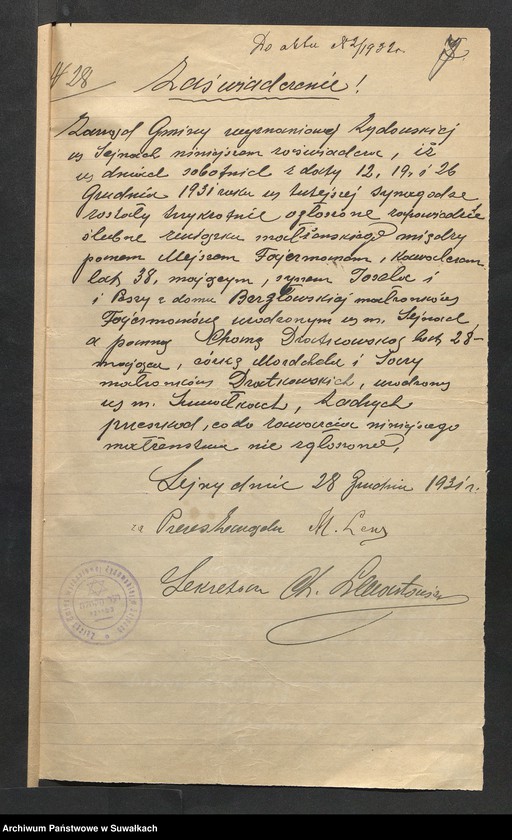 Do aktu № 2/1932 r.
№ 28
Zaświadczenie!
Zarząd Gminy wyznaniowej Żydowskiej
w Sejnach niniejszem zaświadcza, iż
w dniach sobotnich z daty 12, 19, i 26
Grudnia 1931 roku w tutejszej synagodze
zostały trzykrotnie ogłoszone zapowiedzie
ślubne związku małżeńskiego między
panem Mejszem Fajermanem, kawalerem
lat 38, mającym, synem Joszela i
i Rozy z domu Bergłowskiej małżonków
Fajermanów urodzonym w m. Sejnach
a panną Chaną Dratwowską lat 28
mającą, córką Mordchela i Sory
małżonków Dratwowskich, urodzoną
w m. Suwałkach, żadnych
przeszkód, co do zawarcia niniejszego
małżeństwa nie zgłoszono.
Sejny dnia 28 Grudnia 1931 r.
za Prezes Zarządu M. Lenz
Sekretarz Ch.
Archiwum Państwowe w Suwałkach